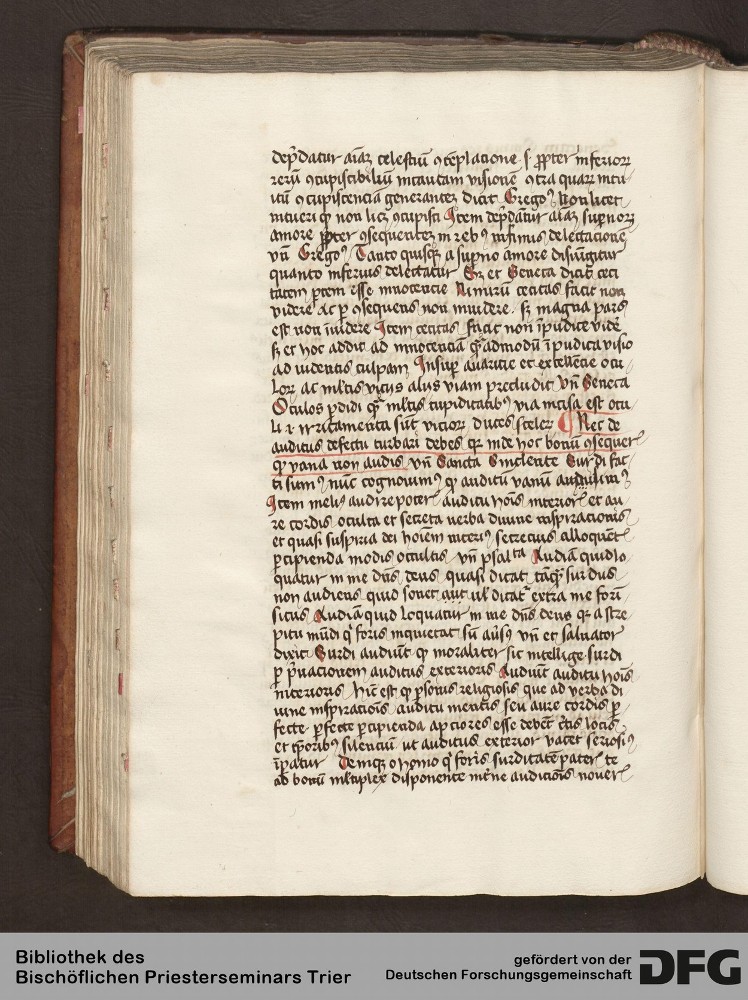 dep̄datur aīaꝫ celestiū ꝯtēplacione .s. ꝓpter inferioꝝ
rerū ꝯcupiscibiliū incautam visionē ꝯtra quaꝝ intu
itū ꝯcupiscenciā generanteꝫ dicit Gregoꝰ Non licet
intueri qꝫ non licꝫ ꝯcupisci Itē dep̄datur aīaꝫ supnoꝝ
amore ꝓpter ꝯsequenteꝫ in rebꝰ infimis delectacionē
vn̄ Gregoꝰ Tanto quisqꝫ a suꝑno amore disiūgitur
quanto inferius delectatur Sꝫ et Seneca dicit ceci
tatem ꝑtem esse innocencie Nimirū cecitas facit non
videre ac ꝑ ꝯsequens non inuidere . sꝫ magna pars
est non inuidere Item cecitas facit non īpudice videre
sꝫ et hoc addit ad innocenciā quēadmodū īpudica visio
ad videntis culpam Insuꝑ auaricie et excellēcie ocu
loꝝ ac ml̄tis vicijs alijs viam precludit vn̄ Seneca
Oculos ꝑdidi qꝫ ml̄tis cupiditatibꝰ via incisa est ocu
li .i. irritamenta sūt vicioꝝ duces sceleꝝ Nec de
auditus defectu turbari debes qꝛ inde hoc bonū ꝯsequeris
qꝫ vana non audis vn̄ Sancta Sincletice Surdi fac
ti sumꝰ nūc cognouimꝰ qꝫ auditū vanū
Item meliꝰ audire poteris auditu hoīs interioris et au
re cordis oculta et secreta verba diuine inspiracionis
et quasi suspiria dei hoīem interiꝰ secrecius alloquētis
ꝑcipienda modis occultis vn̄ psalta Audiā quid lo
quatur in me dn̄s deus quasi dicat tāqꝫ surdus
non audiens quid sonet aut vl̓ dicatr extra me forī
sicus Audiā quid loquatur in me dn̄s deus qꝛ a stre
pitu mūdi qꝫ foris inquietat sū ausꝰ vn̄ et saluator
dixit Surdi audiūt qꝫ moraliter sic intellige surdi
ꝑ p̄uacionem auditus exterioris Audiūt auditu hoīs
interioris Hic est qꝫ ꝑsonis religiosis que ad verba di
uine inspiracionis auditu mentis seu aure cordis ꝑ
fecte ꝑfecte ꝑcipienda apciores esse debēt certis locis
et tp̄oribꝰ silenciū ut auditus exterior vacet seriosiꝰ
īꝑatur Deniqꝫ o homo qꝫ foris surditatē patēr te
ad bonū ml̄tiplex disponente int̄ne audicionis noueris
Bibliothek des
Bischöflichen Priesterseminars Trier
gefördert von der
Deutschen Forschungsgemeinschaft
DFG